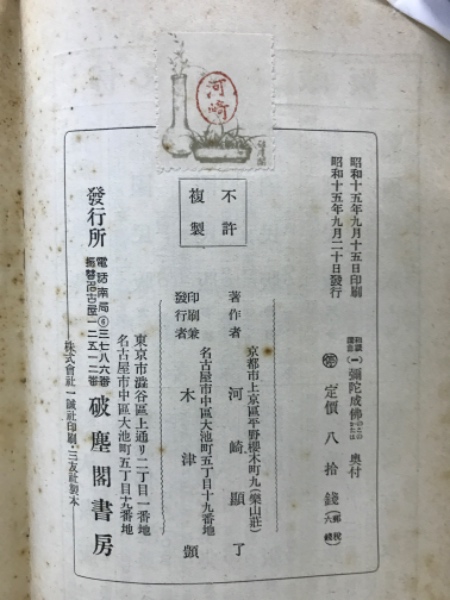 河崎
昭和十五年九月十五日印刷
昭和十五年九月二十日發行
和讚講話(一)彌陀成佛のこのかたは 奥付
定價八拾錢(郵税六錢)
不許複製
著作者
京都市上京區平野櫻木町九(樂山莊)
河崎顯了
印刷兼發行者
名古屋市中區大池町五丁目十九番地
木津顗
東京市澁谷區上通リ二丁目一番地
名古屋市中區大池町五丁目十九番地
發行所
電話南局⑥三七八六番
振替名古屋一二五一二番
破塵閣書房
株式會社一誠社印刷・三友社製本